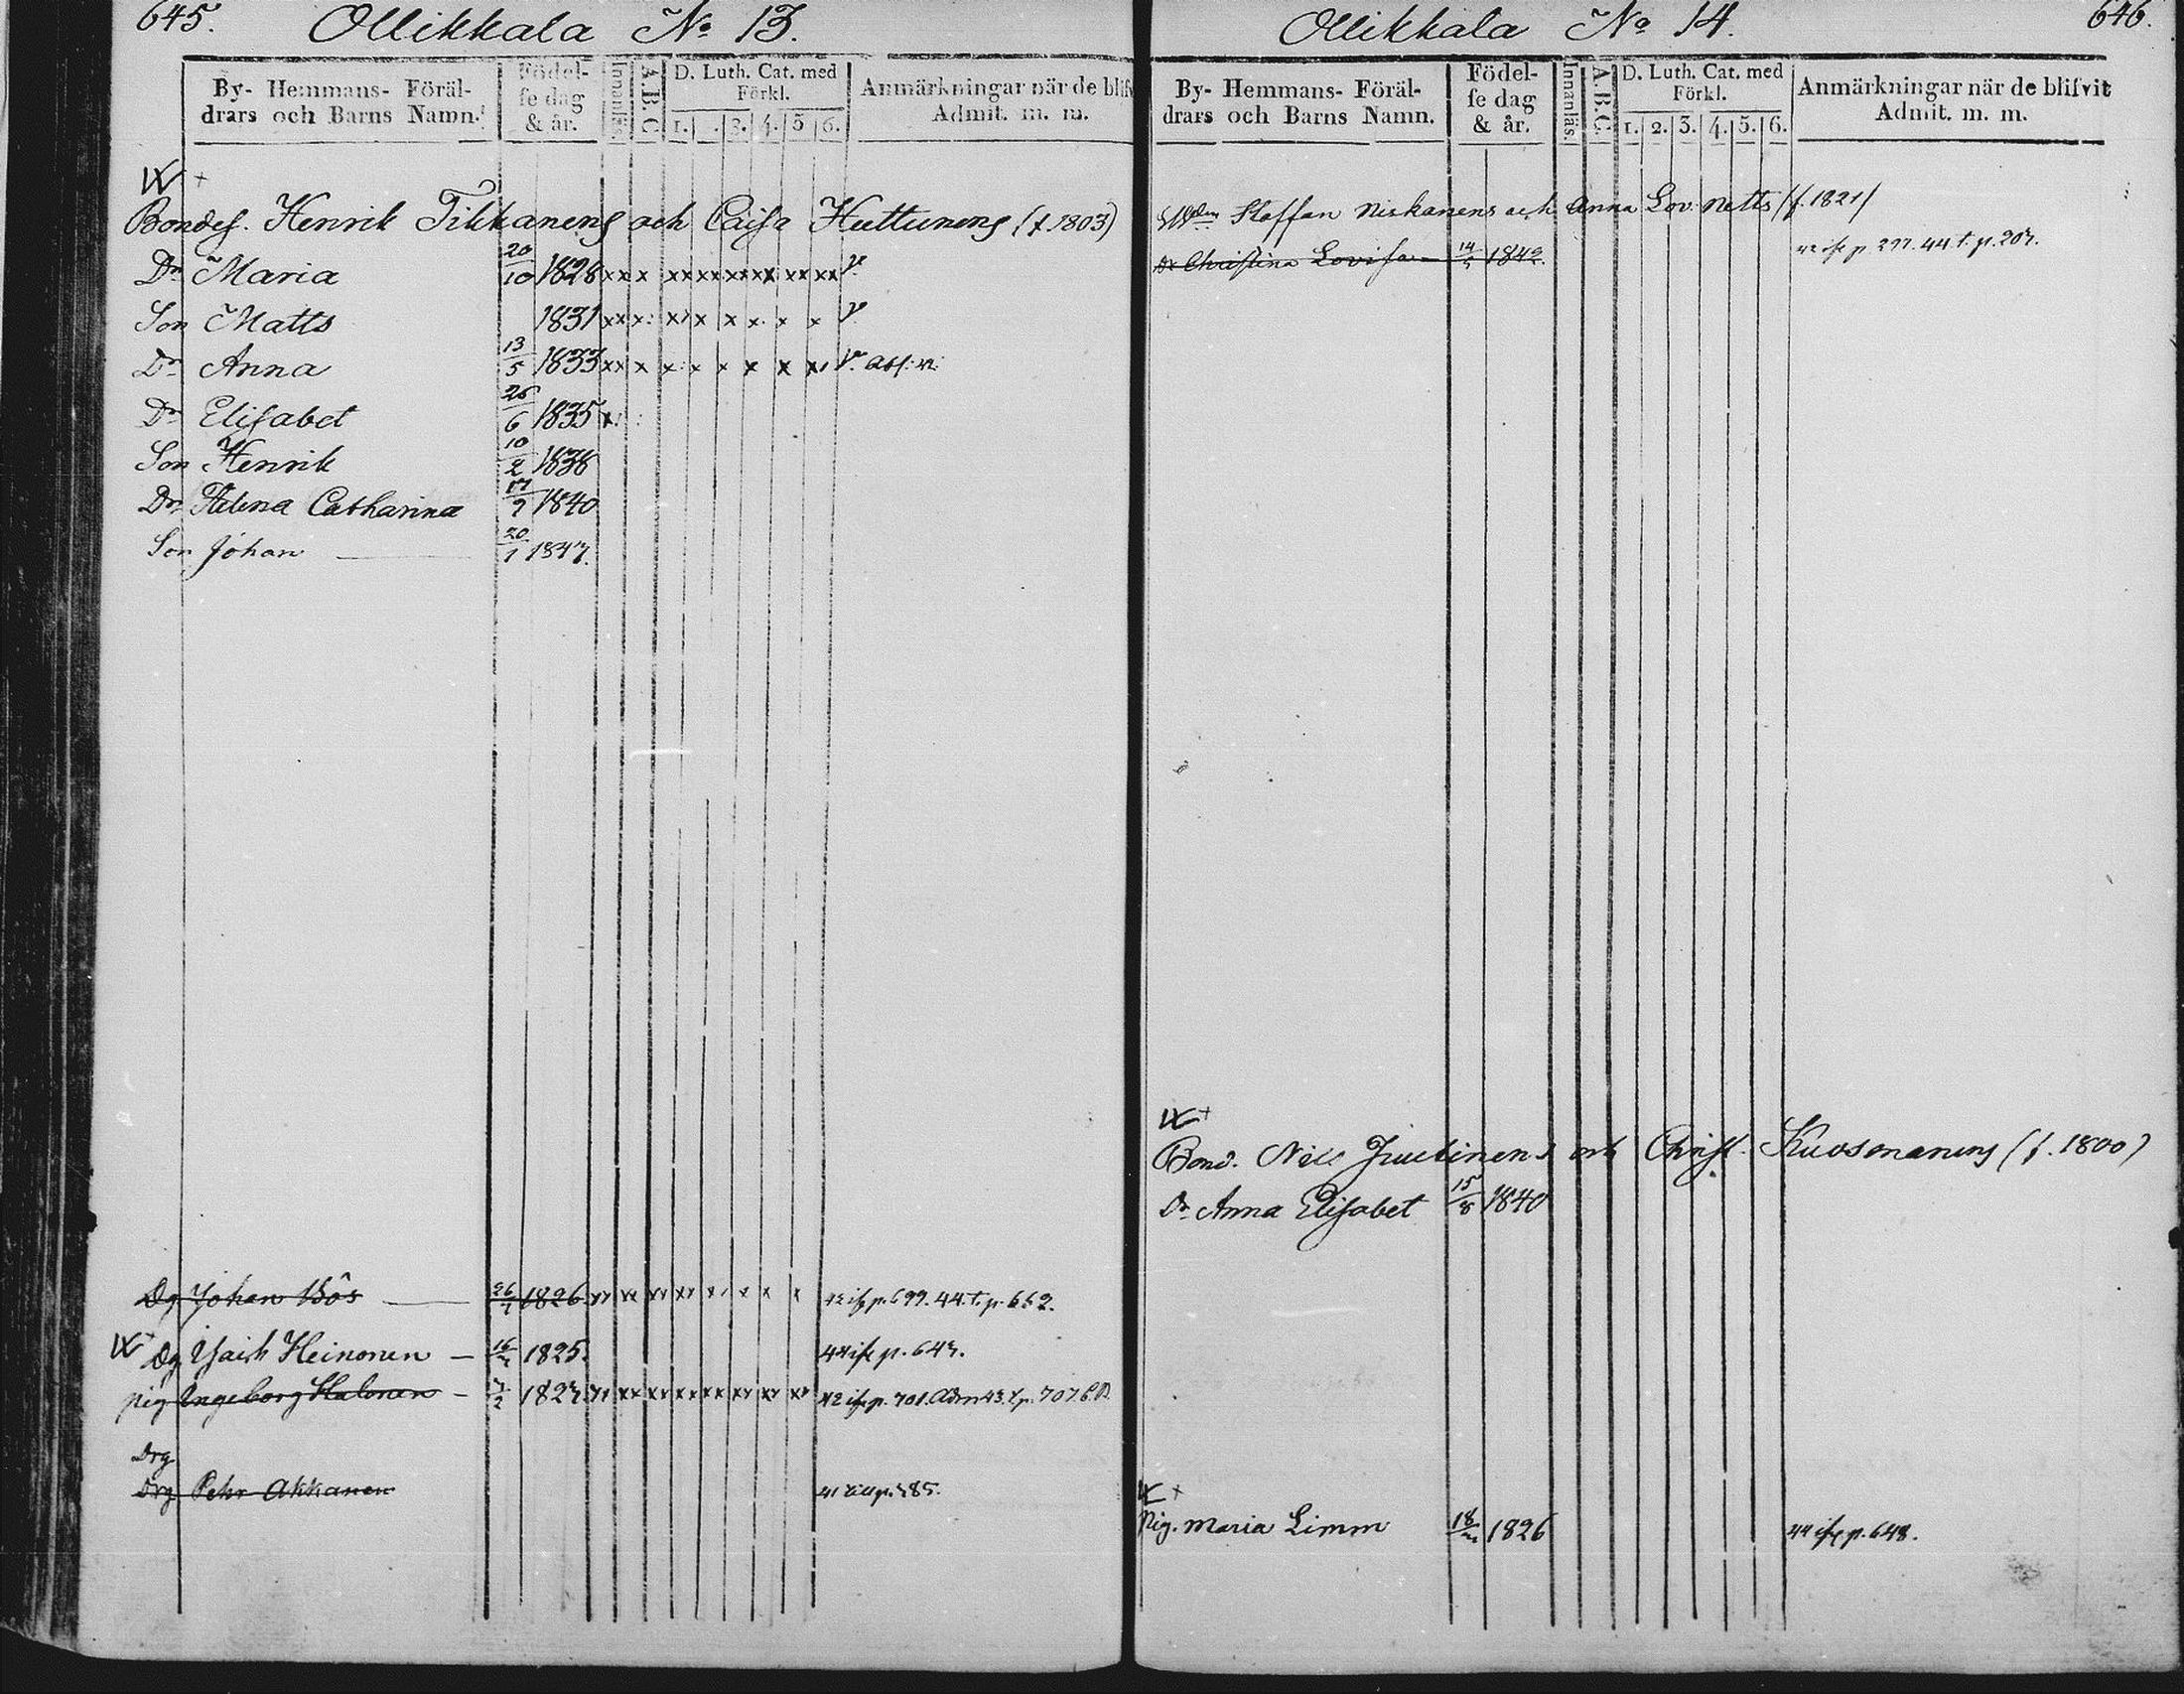 645.
Ollikkala No 13.
By- Hemmans- Föräl-
drars och Barns Namn.
Födel-
se dag
& år.
Innanläs.
A.B.C
D. Luth. Cat. med
Förkl.
1. . 3. 4. 5 6.
Anmärkningar när de blif
Admit. m. m.
Bondes. Henrik Tikkanens och Caisa Huttunens (f. 1803)
Dr Maria 20/10 1828
Son Matts 1831
Dr Anna 13/5 1833
Dr Elisabet 26/6 1835
Son Henrik 10/2 1838
Dr Helena Catharina 17/9 1840
Son Johan 20/1 1847.
Dg Johan Bôs 26/7 1826 42 ifr p. 699. 44. t. p. 652.
Dg Isaik Heinonen 16/ 1825. 44 ifr p. 647.
pig Ingeborg Halonen 7/2 1827. 42 ifr p. 701. Adm 43. t. p. 707.
Drg
Drg Pehr Akkanen 41 till p. 485.
Ollikkala No 14.
646.
By- Hemmans- Föräl-
drars och Barns Namn.
Födel-
se dag
& år.
Innanläs.
A.B.C.
D. Luth. Cat. med
Förkl.
1. 2. 3. 4. 5. 6.
Anmärkningar när de blifvit
Admit. m. m.
Staffan Niskanens och Anna Lov. Netts (f. 1821)
Dr Christina Lovisa 14/5 1842. 42 ifr p. 277. 44. t. p. 207.
Bond. Nils Juutinens och Christ. Kuosmanens (f. 1800)
Dr Anna Elisabet 15/8 1840
Pig. Maria Limm 18/ 1826 44 ifr p. 648.